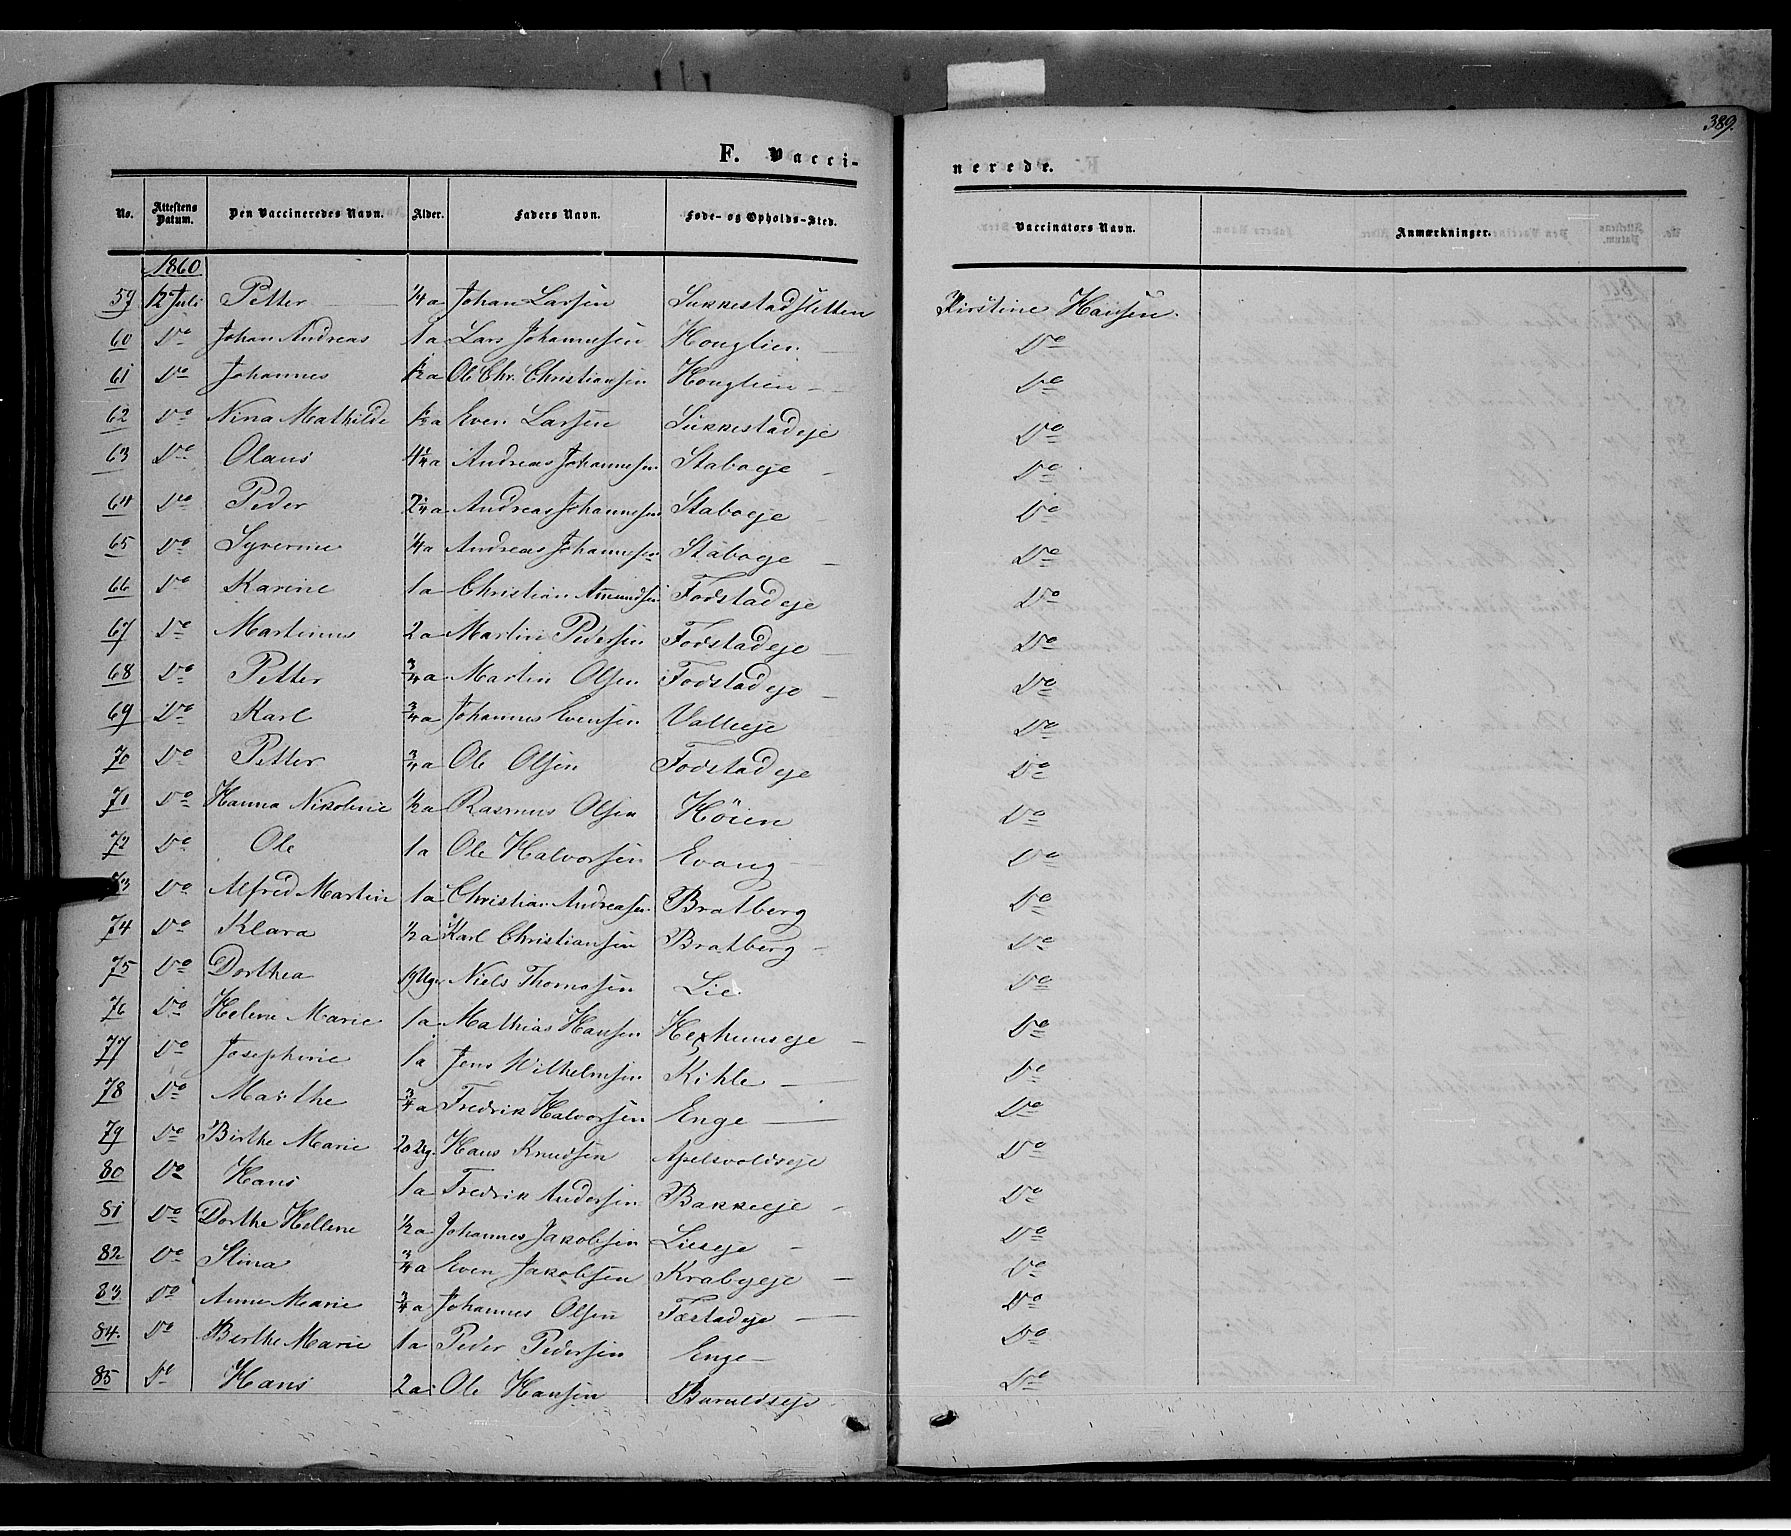 389.
F. Vacci-
nerede.
No. Attestens Datum. Den Vaccineredes Navn. Alder. Faders Navn. Føde- og Opholds-Sted. Vaccinators Navn. Anmærkninger.
1860
59 12 Juli Petter 1/4 a Johan Larsen Sukkestadsletten Kirstine Hansen.
60 Do Johan Andreas 1 a Lars Johannesen Houglien Do
61 Do Johannes 1/2 a Ole Chr. Christiansen Houglien Do
62 Do Nina Mathilde 1/2 a Even Larsen Sukkestadeje Do
63 Do Olaus 4 1/4 a Andreas Johannesen Staboeje Do
64 Do Peder 2 1/4 a Andreas Johannesen Staboeje Do
65 Do Syverine 1/4 a Andreas Johannesen Staboeje Do
66 Do Karine 1 a Christian Amundsen Fodstadeje Do
67 Do Martinus 2 a Martin Pedersen Fodstadeje Do
68 Do Petter 3/4 a Martin Olsen Fodstadeje Do
69 Do Karl 3/4 a Johannes Evensen Valleeje Do
70 Do Petter 3/4 a Ole Olsen Fodstadeje Do
71 Do Hanna Nikoline 1/2 a Rasmus Olsen Høien Do
72 Do Ole 1 a Ole Halvorsen Evang Do
73 Do Alfred Martin 1 a Christian Andreasen Bratberg Do
74 Do Klara 1/2 a Karl Christiansen Bratberg Do
75 Do Dorthea 19 Ug. Niels Thomasen Lie Do
76 Do Helene Marie 1 a Mathias Hansen Do
77 Do Josephine 1 a Jens Wilhelmsen Kihle Do
78 Do Marthe 3/4 a Fredrik Halvorsen Enge Do
79 Do Birthe Marie 20 Ug. Hans Knudsen Apelsvoldseje Do
80 Do Hans 1 a Fredrik Andersen Bakkeeje Do
81 Do Dorthe Hellene 1/2 a Johannes Jakobsen Lieseje Do
82 Do Stina 3/4 a Even Jakobsen Krabyeje Do
83 Do Anne Marie 3/4 a Johannes Olsen Fæstadeje Do
84. Do Berthe Marie 1 a Peder Pedersen Enge Do
85 Do Hans 2 a Ole Hansen Do